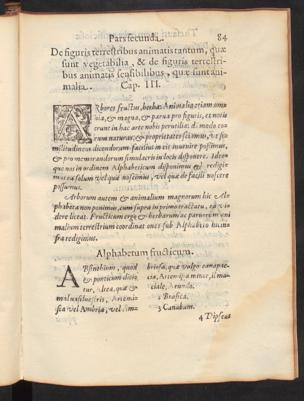 Pars secunda. 84
De figuris terrestribus animatis tantum, quæ
sunt vegetabilia, & de figuris terrestri-
bus animatis sensibilibus, quæ sunt ani-
malia. Cap. III.
ARbores fructus, herbæ: Animalia etiam omnia
& magna, & parua pro figuris, et notis
erunt in hac arte nobis perutilia: di modo eo
rum naturas, & proprietates sciamus,
militudines dicendorum facilius in eis inuenire possimus,
& pro memorandorum simulacris in locis disponere. Ideo
que nos in ordinem Alphabeticum disponimus & redigie
mus ea solum vel quæ noscimus, vel quæ de facili noscere
possumus.
Arborum autem & animalium magnorum hic Al
phabeta non ponimus, cum supra in primo tractatu,
dere liceat. Fructuum ergo & herbarum ac paruorum ani
malium terrestrium coordinationes sub Alphabeto
fra redigimus.
Alphabetum fructicum.
ABsinthium, quod
& ponticum dicitur
tur, Altea, quæ &
maluauiscus, Artemi
sia vel Ambrosia, vel
brosia, quæ vulgo
cia, Artemisia
ciale, Arundo.
2 Brasica.
3 Canabum.
4 Dipsacus